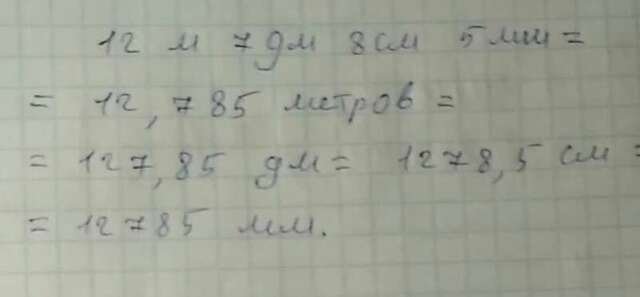 12 м 7 дм 8 см 5 мм =
= 12,785 метров =
= 127,85 дм = 1278,5 см =
= 12785 мм.